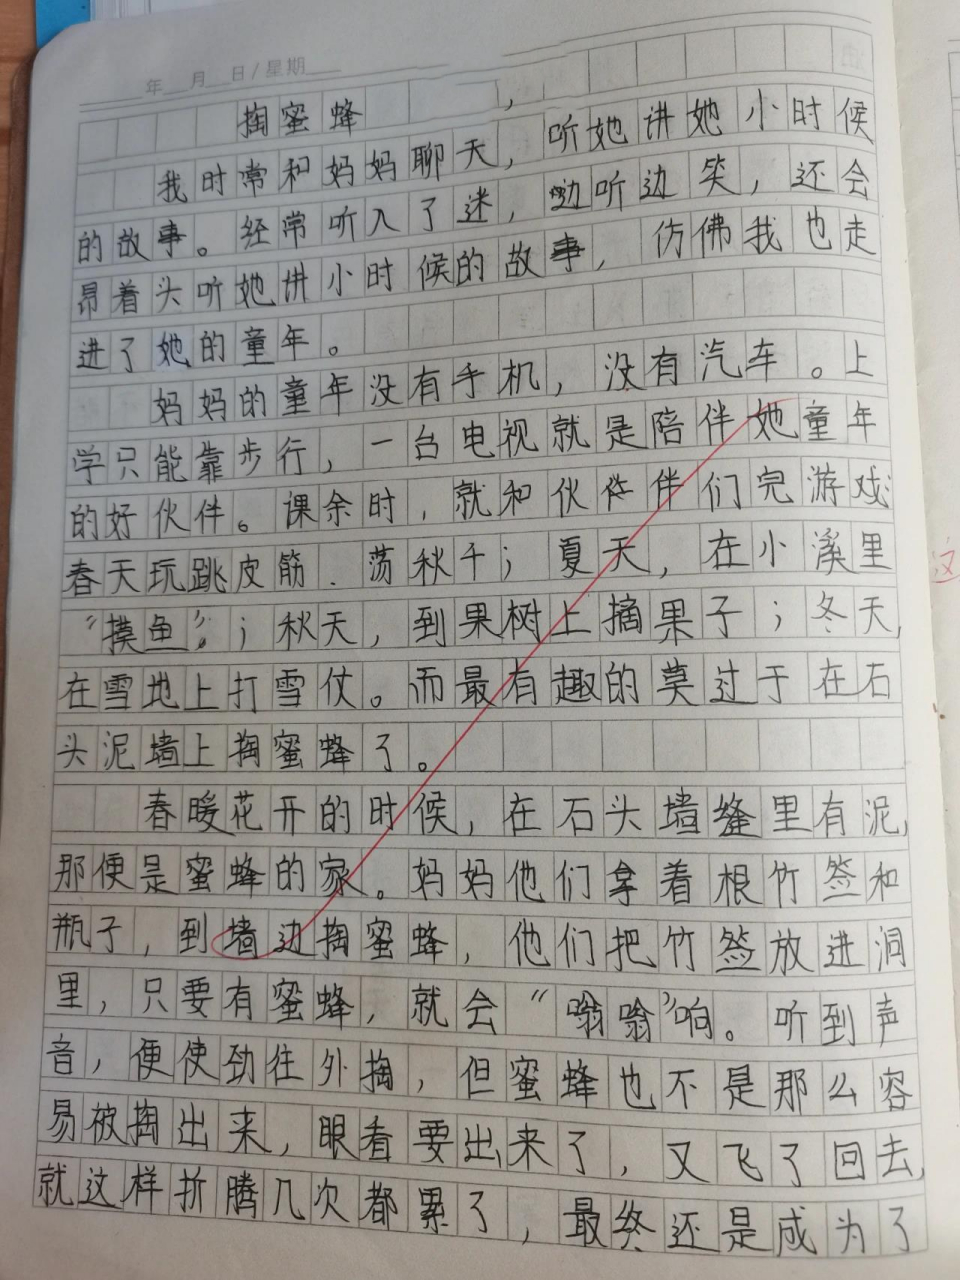 年 月 日/星期
掏蜜蜂
我时常和妈妈聊天，听她讲她小时候
的故事。经常听入了迷，边听边笑，还会
昂着头听她讲小时候的故事，仿佛我也走
进了她的童年。
妈妈的童年没有手机，没有汽车。上
学只能靠步行，一台电视就是陪伴她童年
的好伙伴。课余时，就和伙伴伴们完游戏：
春天玩跳皮筋、荡秋千；夏天，在小溪里
“摸鱼”；秋天，到果树上摘果子；冬天，
在雪地上打雪仗。而最有趣的莫过于在石
头泥墙上掏蜜蜂了。
春暖花开的时候，在石头墙缝里有泥，
那便是蜜蜂的家。妈妈他们拿着根竹签和
瓶子，到墙边掏蜜蜂，他们把竹签放进洞
里，只要有蜜蜂，就会“嗡嗡”响。听到声
音，便使劲往外掏，但蜜蜂也不是那么容
易被掏出来，眼看要出来了，又飞了回去，
就这样折腾几次都累了，最终还是成为了
这